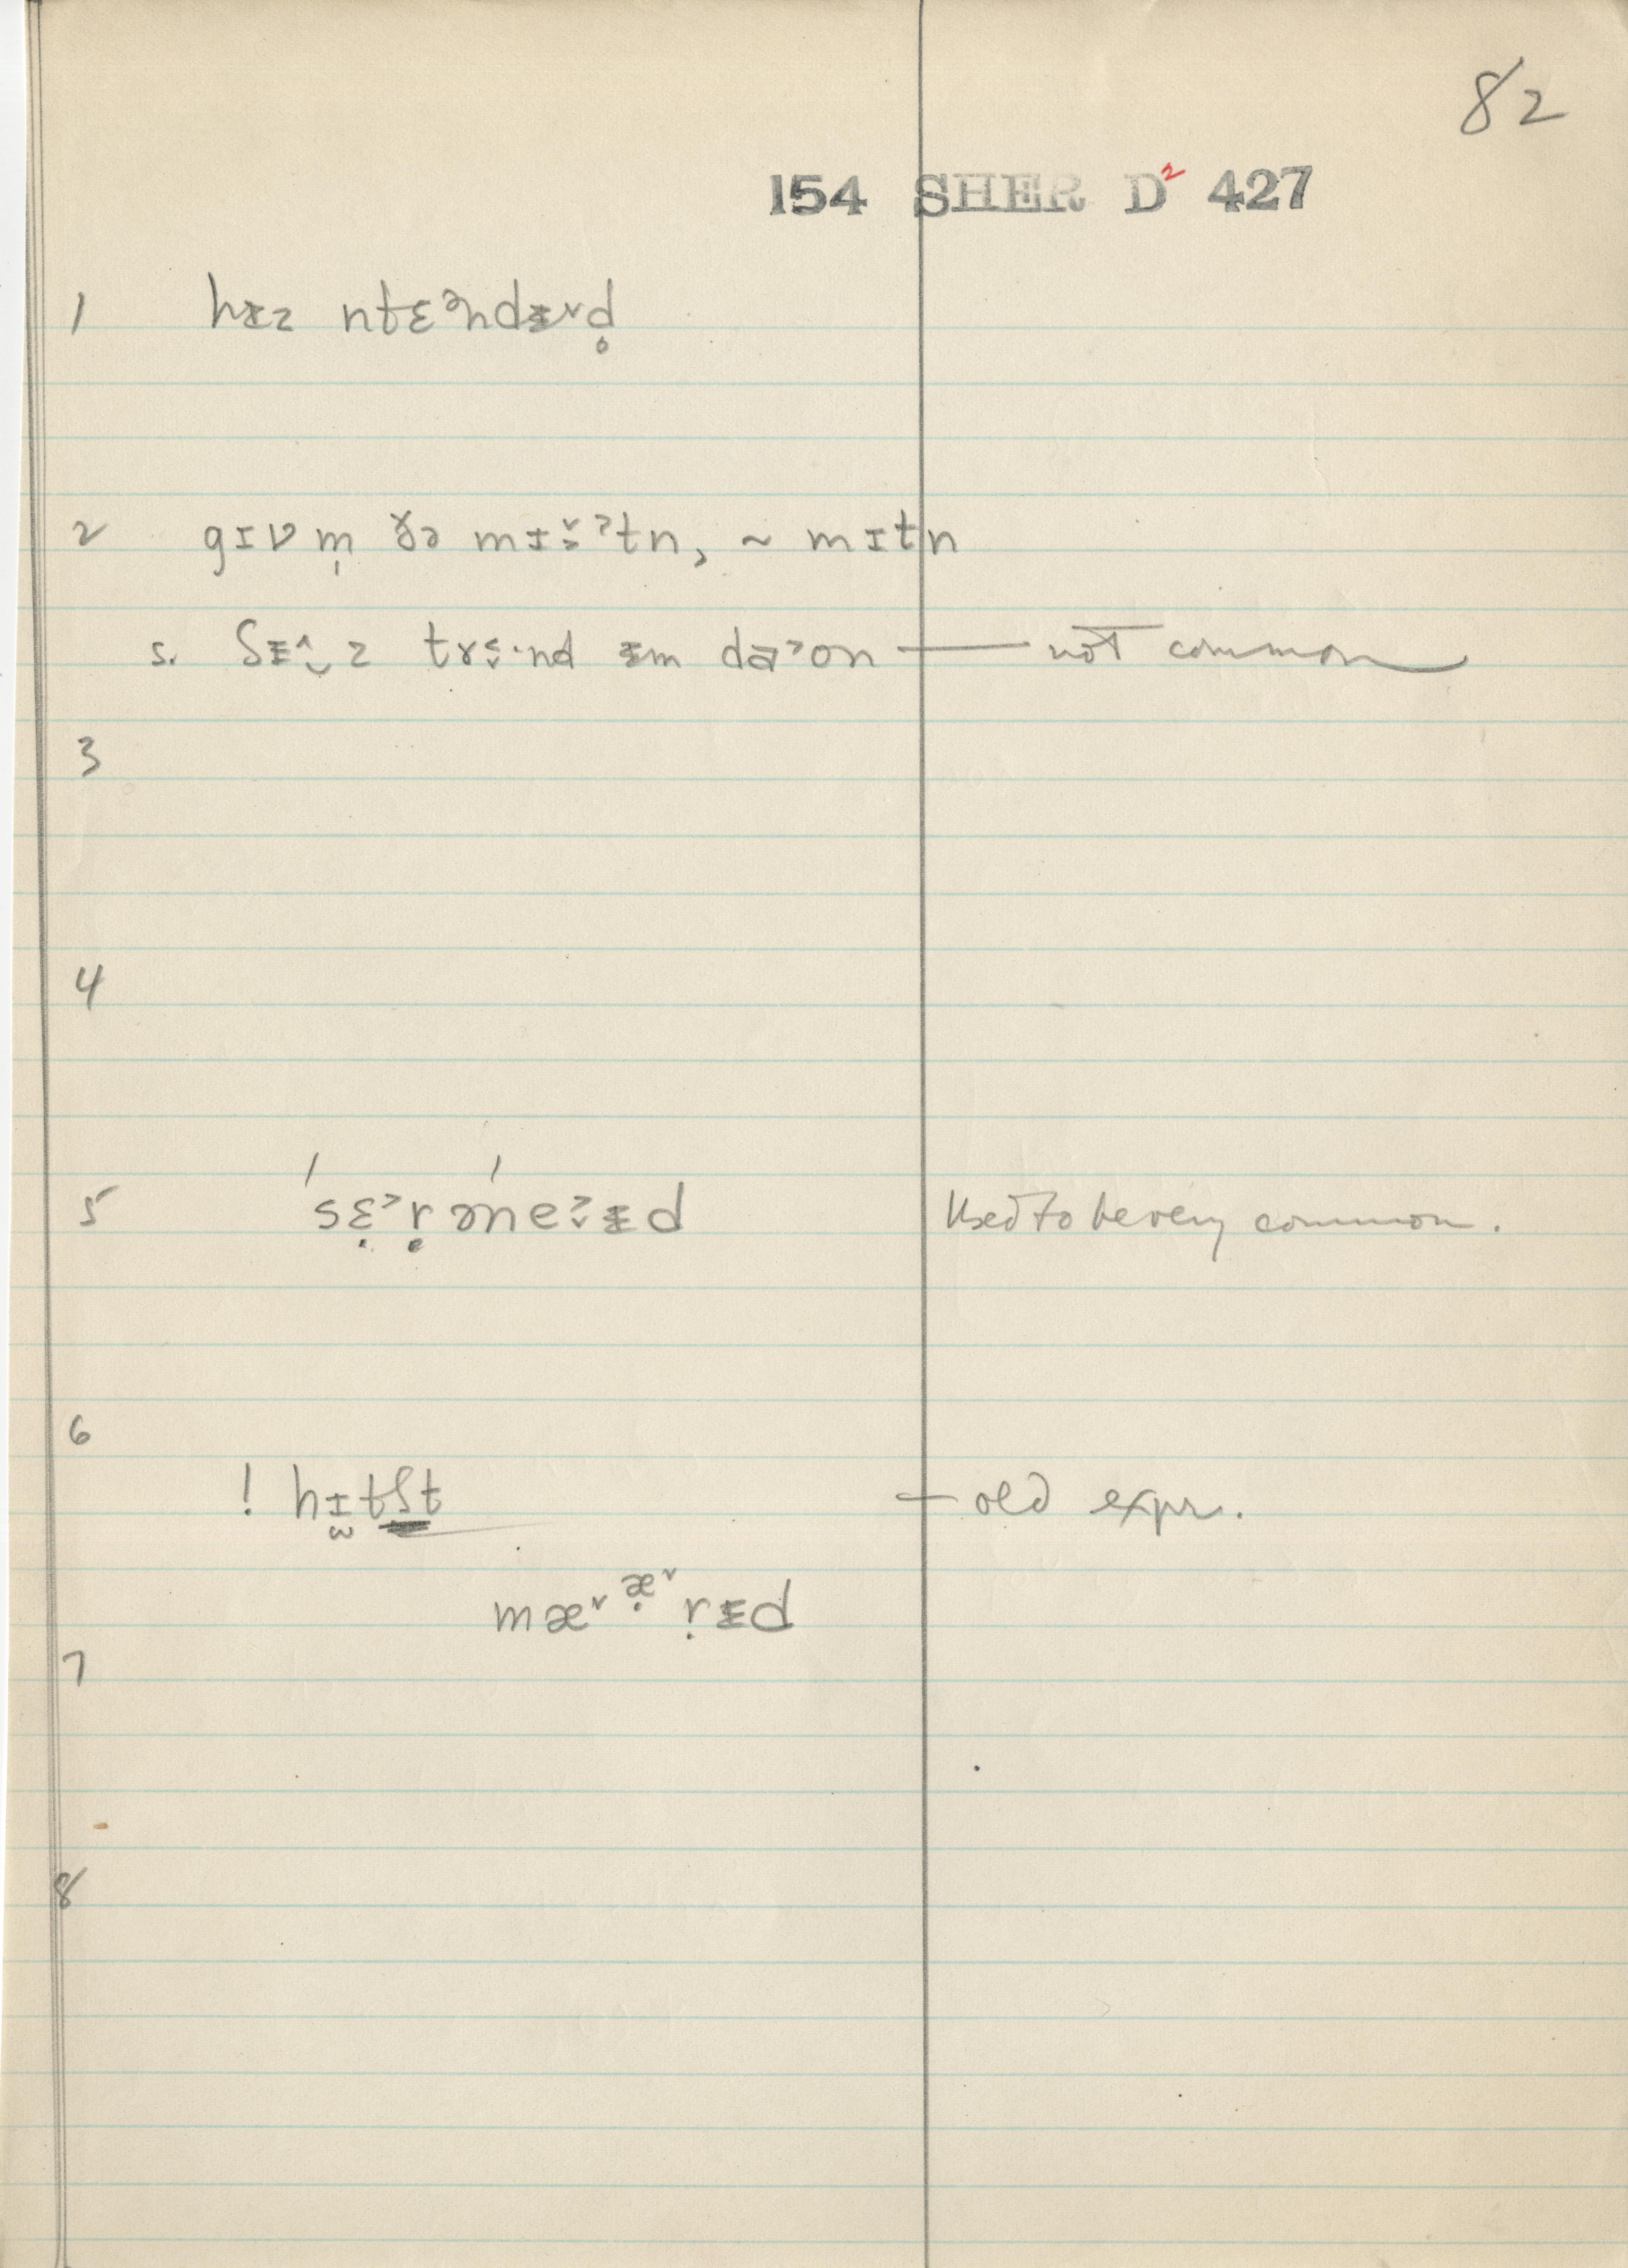 82
154 SHER D² 427
1 hɪ̵z ntɛᵊndɪ̵˅d̥
2 gɪv m̩ ðə mɪ˅˃ˀtn, ~ mɪtn
s. ʃɪ̵ z ɪ̵m — not common
3
4
5 ˈsɛ˃rəˈneɪ̵d Used to be very common.
6
! hɪtʃt — old expr.
mæ˅ æ̣˅ ṛɪ̵d
7
8